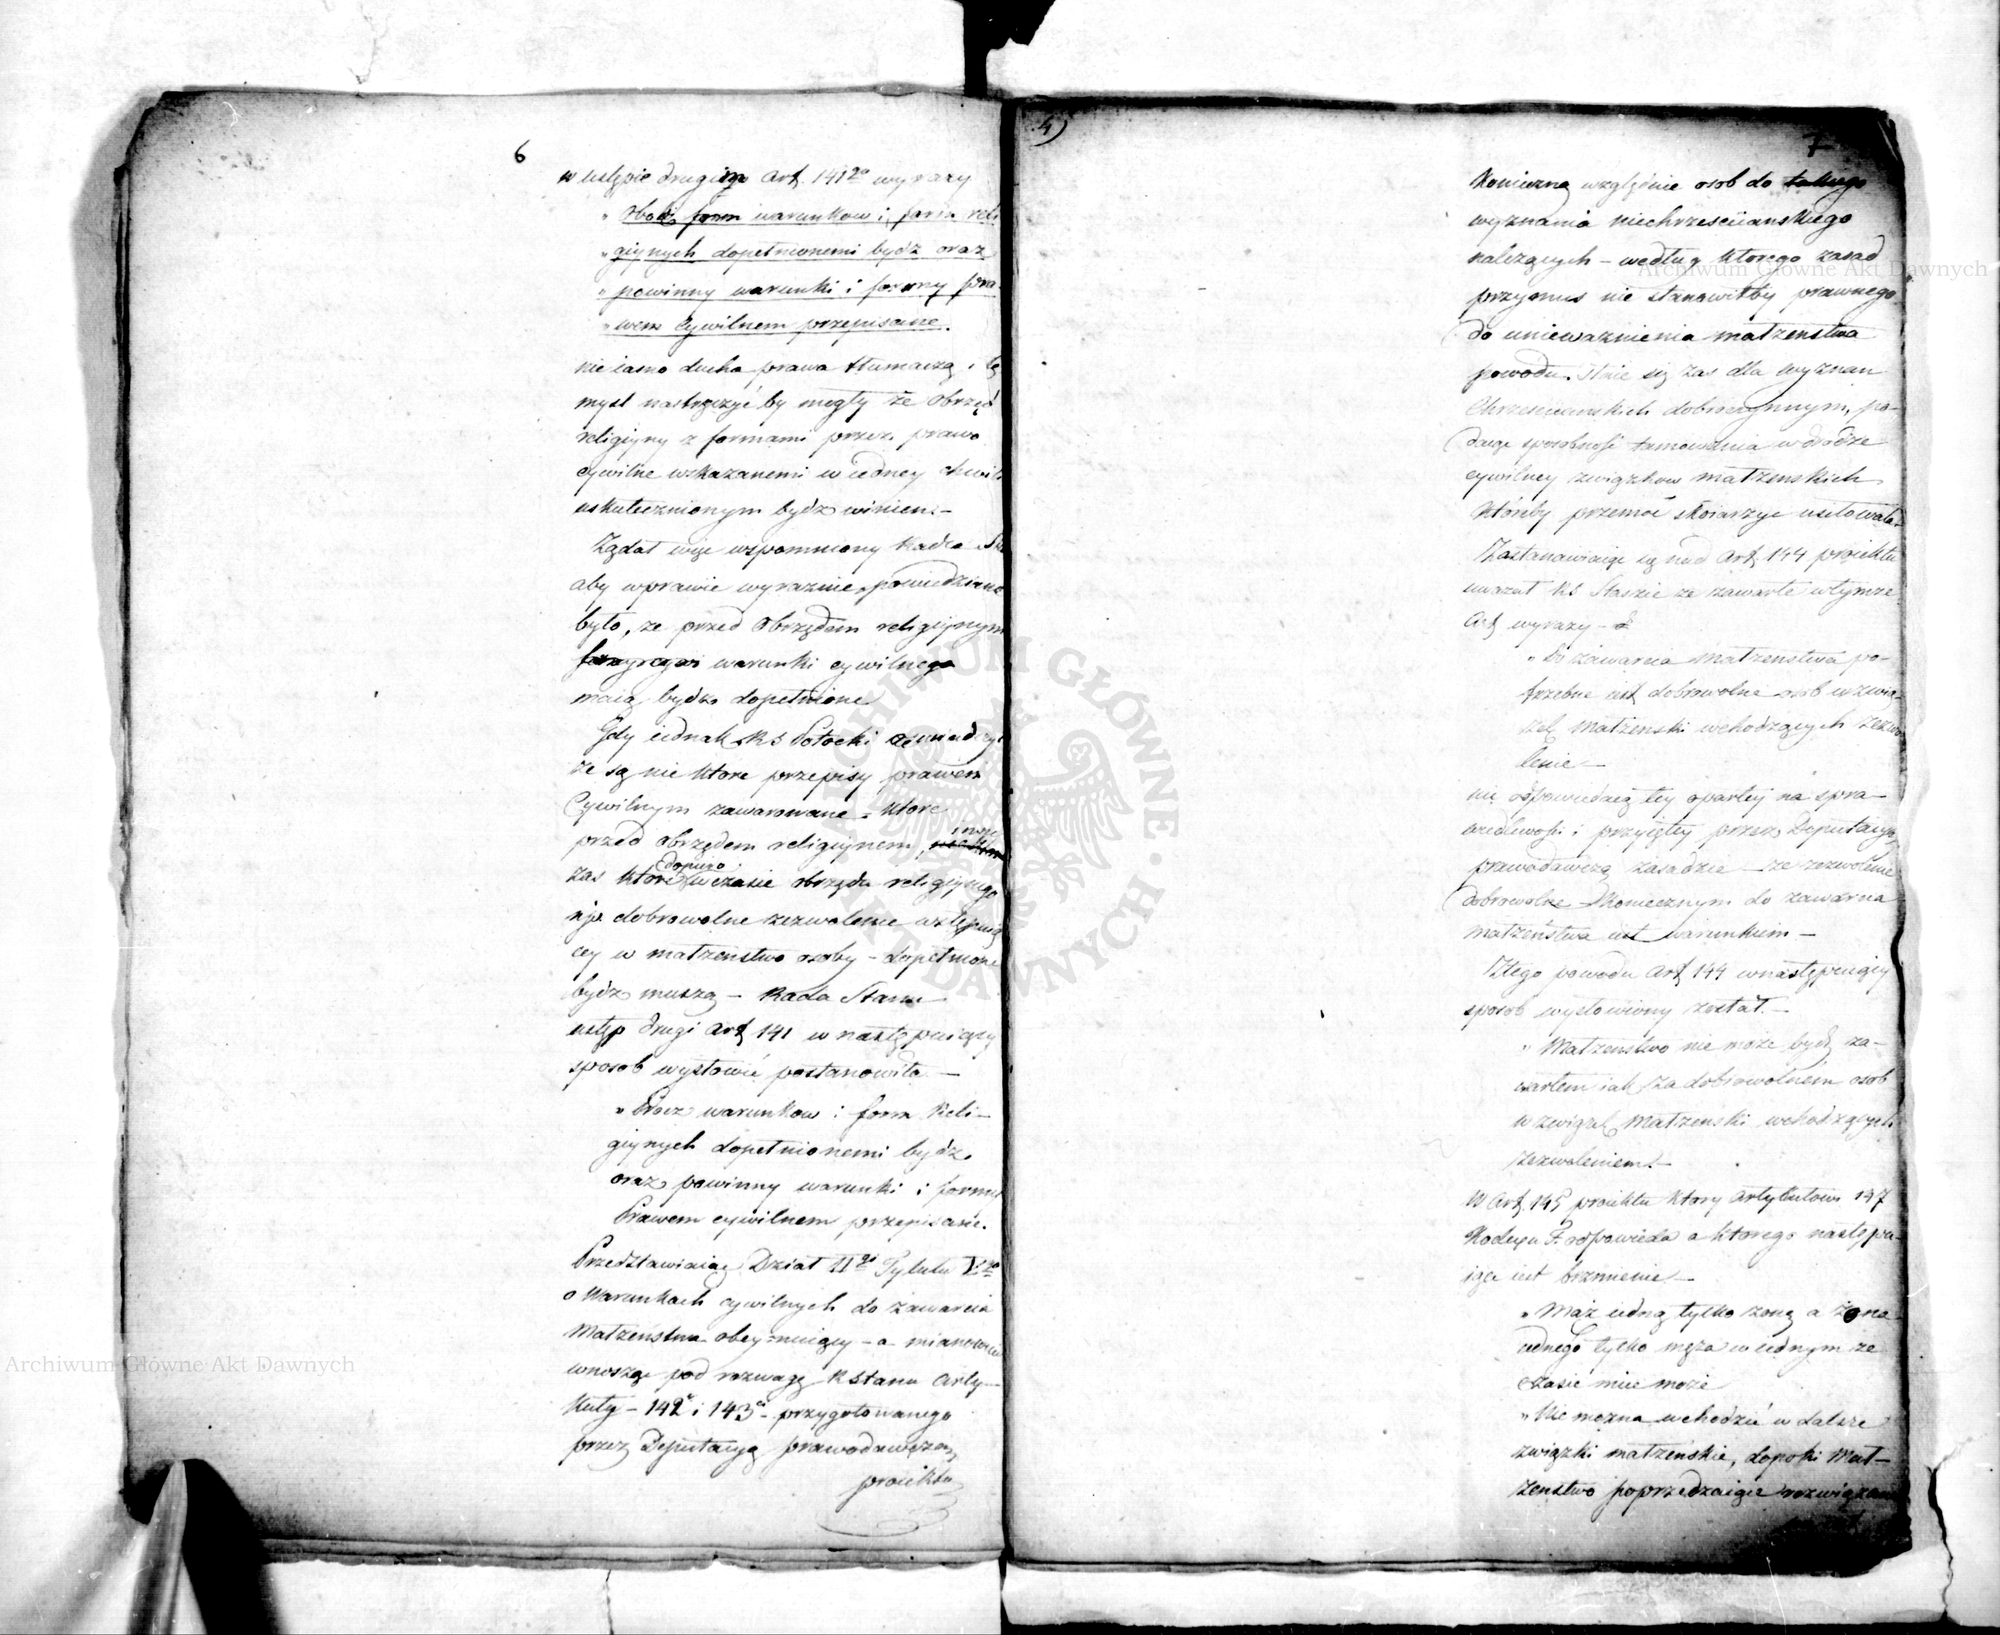 6
w ustępie drugim art. 141go wyrazy
„ obok form warunkow i form reli
„ giynych dopełnionemi bydź oraz
„ powinny warunki i formy pra
„ wem Cywilnem przepisane.
nie iasno ducha prawa tłumaczą i tę
mysl nastręczyć by mogły że obrzęd
religiyny z formami przez prawo
cywilne wskazanemi w iedney chwili
uskutecznionym bydź winien –
Żądał więc wspomniony Radca Sta
aby w prawie wyraznie powiedziano
było, że przed Obrzędem religiynym
warunki cywilnego
maią bydź dopełnione
Gdy iednak KS Potocki oswiadczył
że są nie ktore przepisy prawem
Cywilnym zawarowane – ktore
przed obrzędem religiynem, inne
zas ktore dopiero w czasie obrzędu religiynego
n.p. dobrowolne zezwolenie wstępuią
cey w małzeństwo osoby – dopełnione
bydź muszą – Rada Stanu
ustęp drugi art 141 w następuiący
sposob wysłowić postanowiła –
„ Procz warunkow i form Reli–
giynych dopełnionemi bydź
oraz powinny warunki i formy
Prawem cywilnem przepisane.
Przedstawiaiąc Dział IIgi Tytułu Vgo
o Warunkach cywilnych do zawarcia
Małżeństwa obeymuiący – a mianowicie
wnosząc pod rozwagę R Stanu Arty–
kuły – 142 i 143 – przygotowanego
przez Deputacyą prawodawczą
proiektu
4)
7
Konieczną względnie osob do takiego
wyznania niechrzesciianskiego
należących – według ktorego zasad
przymus nie stanowiłby prawnego
do uniewaznienia małzenstwa
powodu. Stnie się zas dla wyznan
Chrzesciianskich dobroczynnym, po–
daiąc sposobność tamowania w drodze
cywilney związkow małzenskich
któreby przemoc skoiarzyć usiłowała –
Zastanawiaiąc się nad Art. 144 proiektu
uwazał KS Staszic ze zawarte w tymze
Art wyrazy –
„ Do zawarcia małzenstwa po–
trzebne iest dobrowolne osob w zwią–
zek małżenski wchodzących zezwo
lenie –
nie odpowiedaią tey opartey na spra–
wiedliwości i przyiętey przez Deputacyą
prawodawczą zasadzie – ze zezwolenie
dobrowolne koniecznym do zawarcia
małżeństwa iest warunkiem –
Z tego powodu Art 144 w następuiący
sposob wysłowiony został. –
„ Małzenstwo nie może bydź za–
wartem iak za dobrowolnem osob
w związek Małzenski wchodzących
zezwoleniem. –
W Art. 145 proiektu ktory artykułowi 147
Kodexu F. odpowieda a ktorego następu–
iące iest brzmienie –
„ Mąż iedną tylko zonę a żona
iednego tylko męża w iednym że
czasie mieć może
„ Nie mozna wchodzić w dalsze
związki małzenskie, dopoki Mał–
żenstwo poprzedzaiące rozwiązane
Archiwum Główne Akt Dawnych
Archiwum Główne Akt Dawnych
ARCHIWUM GŁÓWNE AKT DAWNYCH